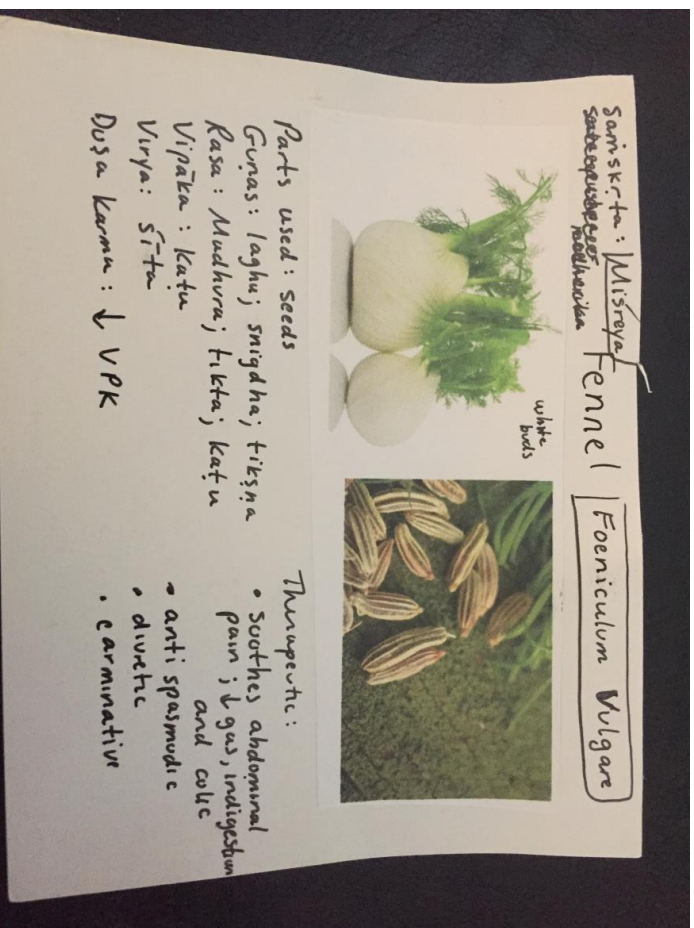 Saṁskṛta: Miśreya Fennel Foeniculum Vulgare
white
buds
Parts used: seeds
Guṇas: laghu; snigdha; tikṣṇa
Rasa: Madhura; tikta; kaṭu
Vipāka: kaṭu
Virya: śīta
Duṣa karma: ↓ VPK
Therapeutic:
• Soothes abdominal
pain; ↓ gas, indigestion
and colic
• antispasmodic
• diuretic
• carminative